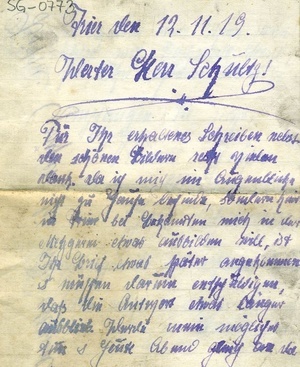 SG-0773
Trier den 12.11.19.
Werter Herr Schultz!
Für Ihr erhaltenes Schreiben nebst
den schönen Bildern recht vielen
dank. da ich mich im Augenblicke
nicht zu Hause befinde, sondern hier
in Trier bei Bekannten mich in der
Metzgerei etwas ausbilden will, ist
Ihr Brief etwas später angekommen
müssen darum entschuldigen,
daß die Antwort etwas länger
ausblieb. Werde wenn möglich
heute Abend